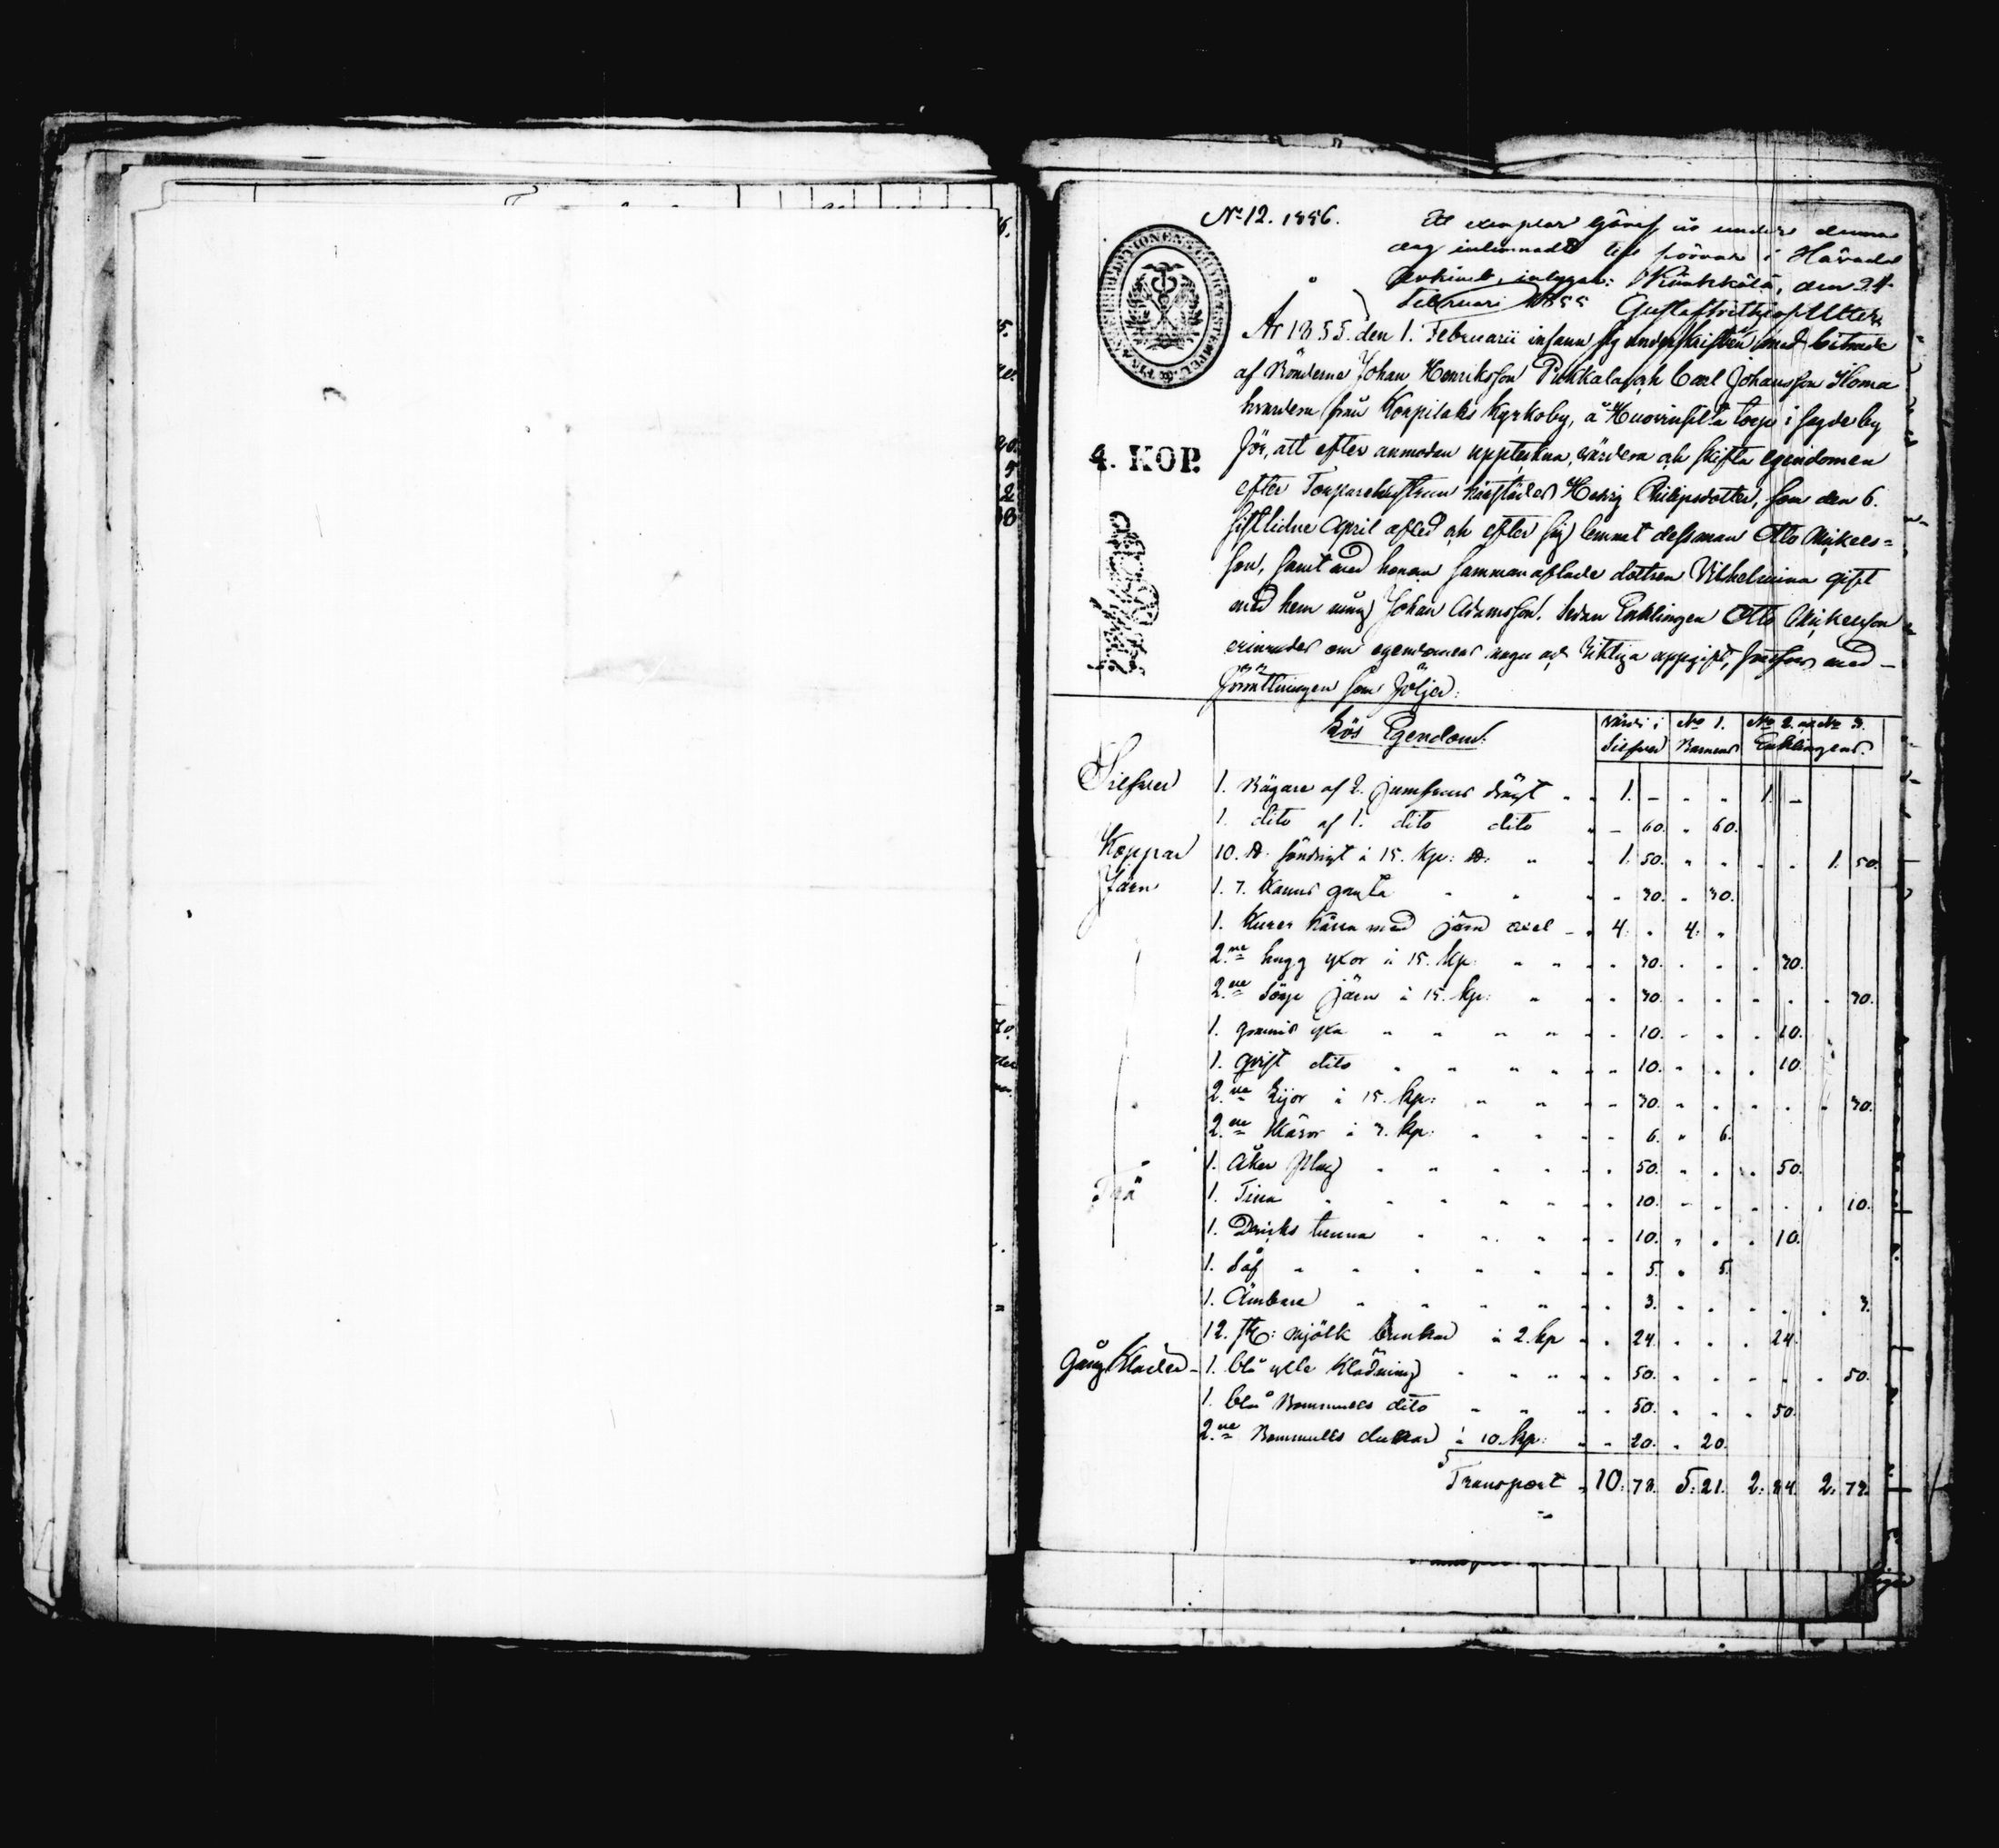 № 12. 1856.
Et exemplar häraf är under denna
dag inlemnadt till förvar i Härads
arkivet, intygar: Kuhkkälä, den 24
Februari 1855 Gustaf
År 1855. den 1. Februarii infann sig undertecknad med biträde
af Bönderna Johan Henriksson Pukkala och Carl Johansson Iloma
hvardera från Korpilaks kyrkoby, å torp i sagde by
för, att efter anmodan uppteckna, värdera och skifta egendomen
efter Torparehustrun härstädes Hedvig Philipsdotter, som den 6.
sistlidne April afled och efter sig lemnat dess man Otto Mickels=
son, samt med honom sammanaflade dottren Vilhelmina gift
med hem måg Johan Adamsson. Sedan Enklingen Otto Mickelsson
erinrades om egendomens noga och riktiga uppgift, med
förrättningen som följer:
Lös Egendom:
värde i Silfver
No 1. Barnens
No 2. och No 3. Enklingens
Silfver 1. Bägare af 2. jumfrurs drägt 1. - 1. -
1. dito af 1. dito dito - 60. 60.
Koppar 10. ℔ söndrigt à 15. kp: ℔: 1. 50. 1. 50.
Järn 1. 7. kanns gryta 30. 30.
1. Kärra med järn axel 4. 4.
2.ne hugg yxor à 15. kp. 30. 30.
2.ne järn à 15. kp: 30. 30.
1. yxa 10. 10.
1. qvist dito 10. 10.
2.ne Lijor à 15. kp: 30. 30.
2.ne Skäror à 3. kp. 6. 6.
1. Åker plog 50. 50.
Trä 1. Tina 10. 10.
1. Dricks tunna 10. 10.
1. Så 5. 5.
1. Ämbare 3. 3.
12. st: mjölk bunkar à 2. kp 24. 24.
Gång Kläder 1. blå ylle Klädning 50. 50.
1. blå Bommulls dito 50. 50.
2.ne Bommulls dukar à 10. kp: 20. 20.
Transport 10. 78. 5. 21. 2. 84. 2. 73.
4. KOP.